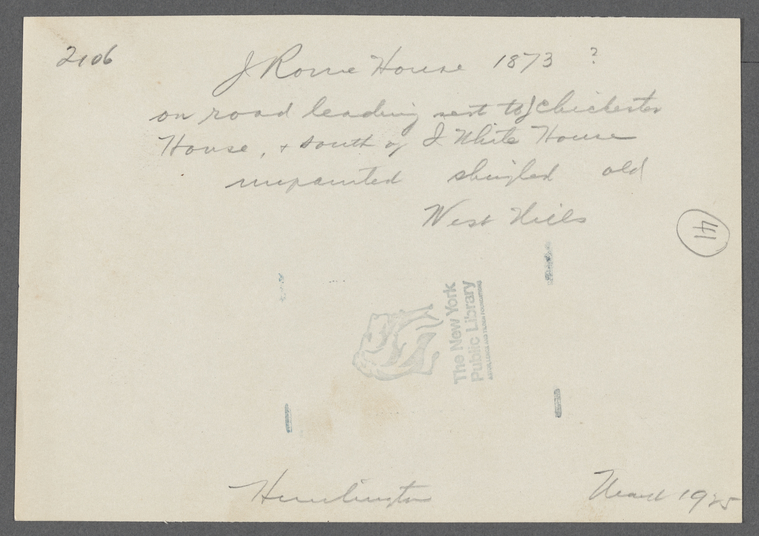 2106
J Rome House 1873 ?
on road leading west to J Chichester
House, + south of J. White House
unpainted shingled old
West Hills
41
The New York
Public Library
Huntington
March 1925